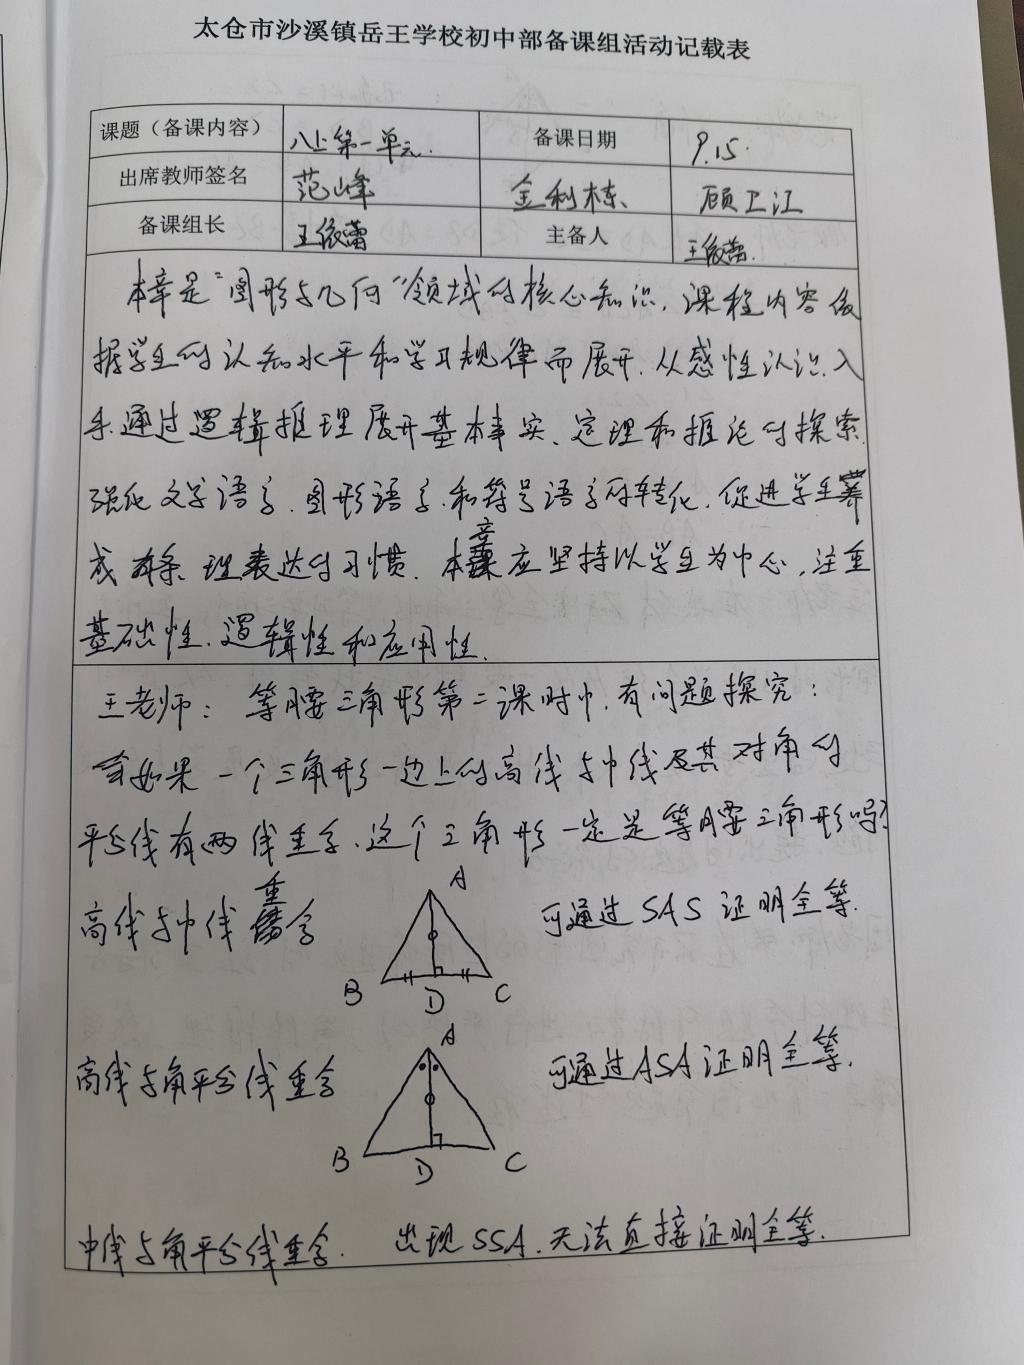 太仓市沙溪镇岳王学校初中部备课组活动记载表
课题（备课内容） 八上第一单元. 备课日期 9.15.
出席教师签名 范峰 金利栋、 顾卫江
备课组长 王依蕾 主备人 王依蕾.
本章是“图形与几何”领域的核心知识，课程内容依
据学生的认知水平和学习规律而展开.从感性认识入
手.通过逻辑推理展开基本事实、定理和推论的探索.
强化文字语言.图形语言.和符号语言的转化.促进学生养
成有条理表达的习惯.本章应坚持以学生为中心,注重
基础性.逻辑性和应用性.
王老师： 等腰三角形第二课时中.有问题探究：
如果一个三角形一边上的高线与中线及其对角的
平分线有两线重合.这个三角形一定是等腰三角形吗?
高线与中线重合 可通过SAS证明全等.
A
B D C
高线与角平分线重合 可通过ASA证明全等.
A
B D C
中线与角平分线重合. 出现SSA.无法直接证明全等.